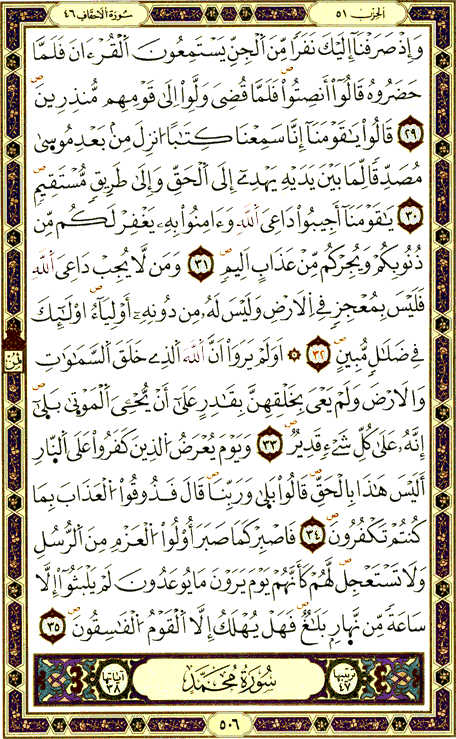 الحزب ٥١
سورة الأحقاف ٤٦
وَإِذْ صَرَفْنَا إِلَيْكَ نَفَرًا مِّنَ اَلْجِنِّ يَسْتَمِعُونَ اَلْقُرْءَانَ فَلَمَّا
حَضَرُوهُ قَالُوٓا أَنصِتُوا فَلَمَّا قُضِىَ وَلَّوِا اِلَىٰ قَوْمِهِم مُّنذِرِينَ
٢٩ قَالُوا يَٰقَوْمَنَآ إِنَّا سَمِعْنَا كِتَٰبًا اُنزِلَ مِنۢ بَعْدِ مُوسَىٰ
مُصَدِّقًا لِّمَا بَيْنَ يَدَيْهِ يَهْدِىٓ إِلَى اَلْحَقِّ وَإِلَىٰ طَرِيقٍ مُّسْتَقِيمٍ
٣٠ يَٰقَوْمَنَآ أَجِيبُوا دَاعِىَ اَللَّهِ وَءَامِنُوا بِهِۦ يَغْفِرْ لَكُم مِّن
ذُنُوبِكُمْ وَيُجِرْكُم مِّنْ عَذَابٍ اَلِيمٍ ٣١ وَمَن لَّا يُجِبْ دَاعِىَ اَللَّهِ
فَلَيْسَ بِمُعْجِزٍ فِى اِلَارْضِ وَلَيْسَ لَهُۥ مِن دُونِهِۦٓ أَوْلِيَآءُ اوْلَٰٓئِكَ
فِى ضَلَٰلٍ مُّبِينٍ ٣٢ ۞ اَوَلَمْ يَرَوَا اَنَّ اَللَّهَ اَلَّذِى خَلَقَ اَلسَّمَٰوَٰتِ
وَالَارْضَ وَلَمْ يَعْىَ بِخَلْقِهِنَّ بِقَٰدِرٍ عَلَىٰٓ أَنْ يُّحْۦِىَ اَلْمَوْتَىٰ بَلَىٰٓ
إِنَّهُۥ عَلَىٰ كُلِّ شَىْءٍ قَدِيرٌ ٣٣ وَيَوْمَ يُعْرَضُ اُلَّذِينَ كَفَرُوا عَلَى اَلنَّارِ
أَلَيْسَ هَٰذَا بِالْحَقِّ قَالُوا بَلَىٰ وَرَبِّنَا قَالَ فَذُوقُوا اُلْعَذَابَ بِمَا
كُنتُمْ تَكْفُرُونَ ٣٤ فَاصْبِرْ كَمَا صَبَرَ أُوْلُوا اُلْعَزْمِ مِنَ اَلرُّسُلِ
وَلَا تَسْتَعْجِل لَّهُمْ كَأَنَّهُمْ يَوْمَ يَرَوْنَ مَا يُوعَدُونَ لَمْ يَلْبَثُوٓا إِلَّا
سَاعَةً مِّن نَّهَارٍ بَلَٰغٌ فَهَلْ يُهْلَكُ إِلَّا اَلْقَوْمُ اُلْفَٰسِقُونَ ٣٥
ترتيبها ٤٧ سُورَةُ مُحَمَّدٍ آياتها ٣٨
٥٠٦